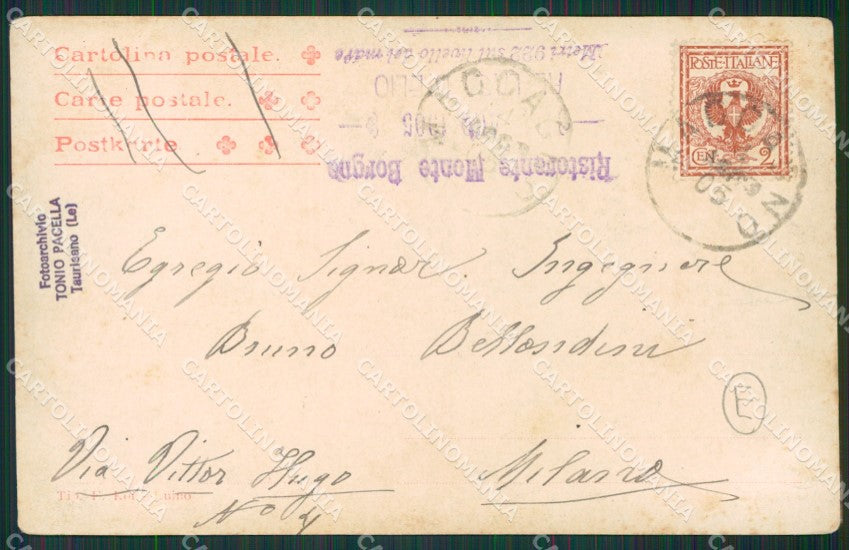 Cartolina postale.
Carte postale.
Postkarte
Metri 922 sul livello del mare
Ristorante Monte Borgna
POSTE·ITALIANE
2
05
Fotoarchivio
TONIO PACELLA
Taurisano (Le)
Egregio Signor Ingegnere
Bruno
Milano
E
Via Vittor Hugo
No 4
CARTOLINOMANIA